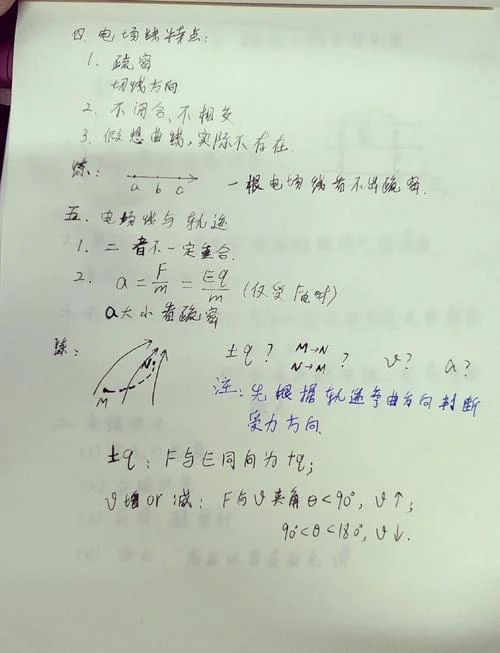 四. 电场线特点:
1. 疏密
切线方向
2. 不闭合、不相交
3. 假想曲线,实际不存在.
练: a b c 一根电场线看不出疏密.
五. 电场线与轨迹
1. 二者不一定重合.
2. a = F/m = Eq/m (仅受F电时)
a大小看疏密.
练: M N ±q? M→N N→M ? v? a?
注: 先根据轨迹弯曲方向判断
受力方向.
±q: F与E同向为+q;
v增or减: F与v夹角θ<90°, v↑;
90°<θ<180°, v↓.